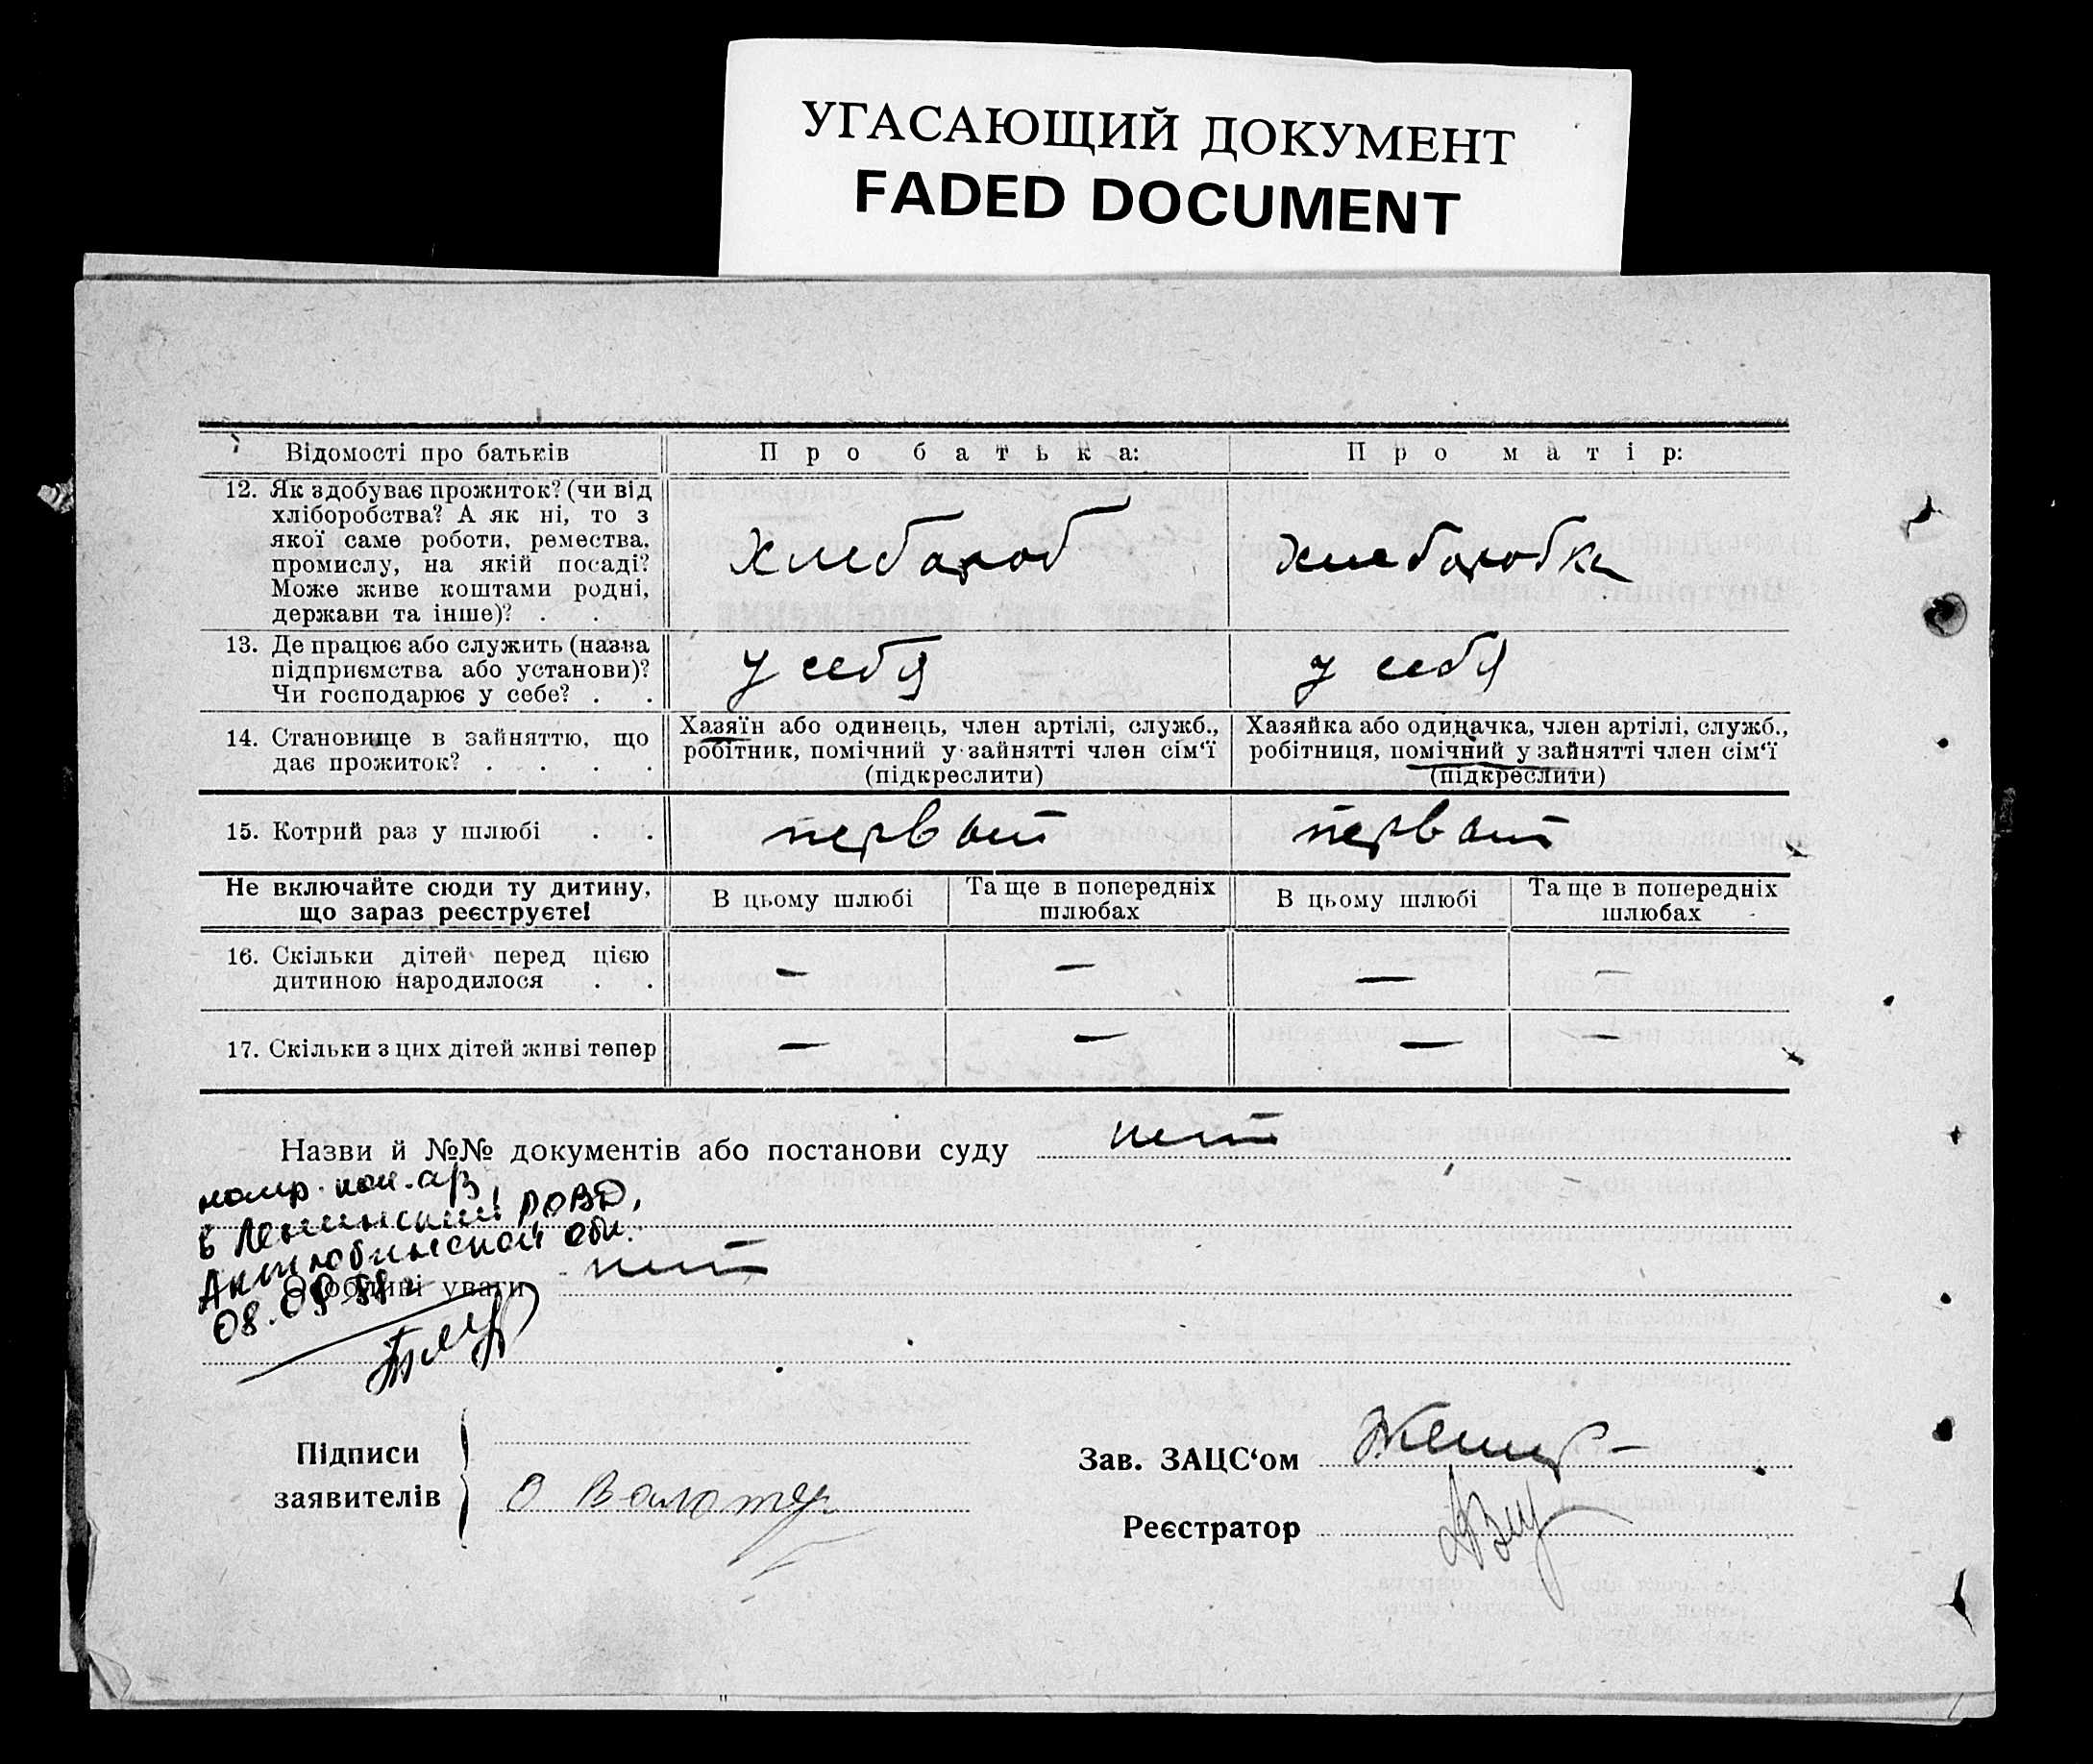 УГАСАЮЩИЙ ДОКУМЕНТ
FADED DOCUMENT
Відомості про батьків
Про батька:
Про матір:
12. Як здобуває прожиток? (чи від
хліборобства? А як ні, то з
якої саме роботи, ремества,
промислу, на якій посаді?
Може живе коштами родні,
держави та інше)? . .
хлебороб
хлеборобка
13. Де працює або служить (назва
підприємства або установи)?
Чи господарює у себе? . .
у себя
у себя
14. Становище в зайняттю, що
дає прожиток? . . . .
Хазяїн або одинець, член артілі, служб.,
робітник, помічний у зайнятті член сім‘ї
(підкреслити)
Хазяйка або одиначка, член артілі, служб.,
робітниця, помічний у зайнятті член сім‘ї
(підкреслити)
15. Котрий раз у шлюбі . .
первый
первый
Не включайте сюди ту дитину,
що зараз реєструєте!
В цьому шлюбі
Та ще в попередніх
шлюбах
В цьому шлюбі
Та ще в попередніх
шлюбах
16. Скільки дітей перед цією
дитиною народилося . .
— — — —
17. Скільки з цих дітей живі тепер
— — — —
Назви й №№ документів або постанови суду нет
в Ленинский РОВД,
Актюбинской обл.
08.09
Особливі уваги нет
Підписи
заявителів
Зав. ЗАЦС‘ом
Реєстратор